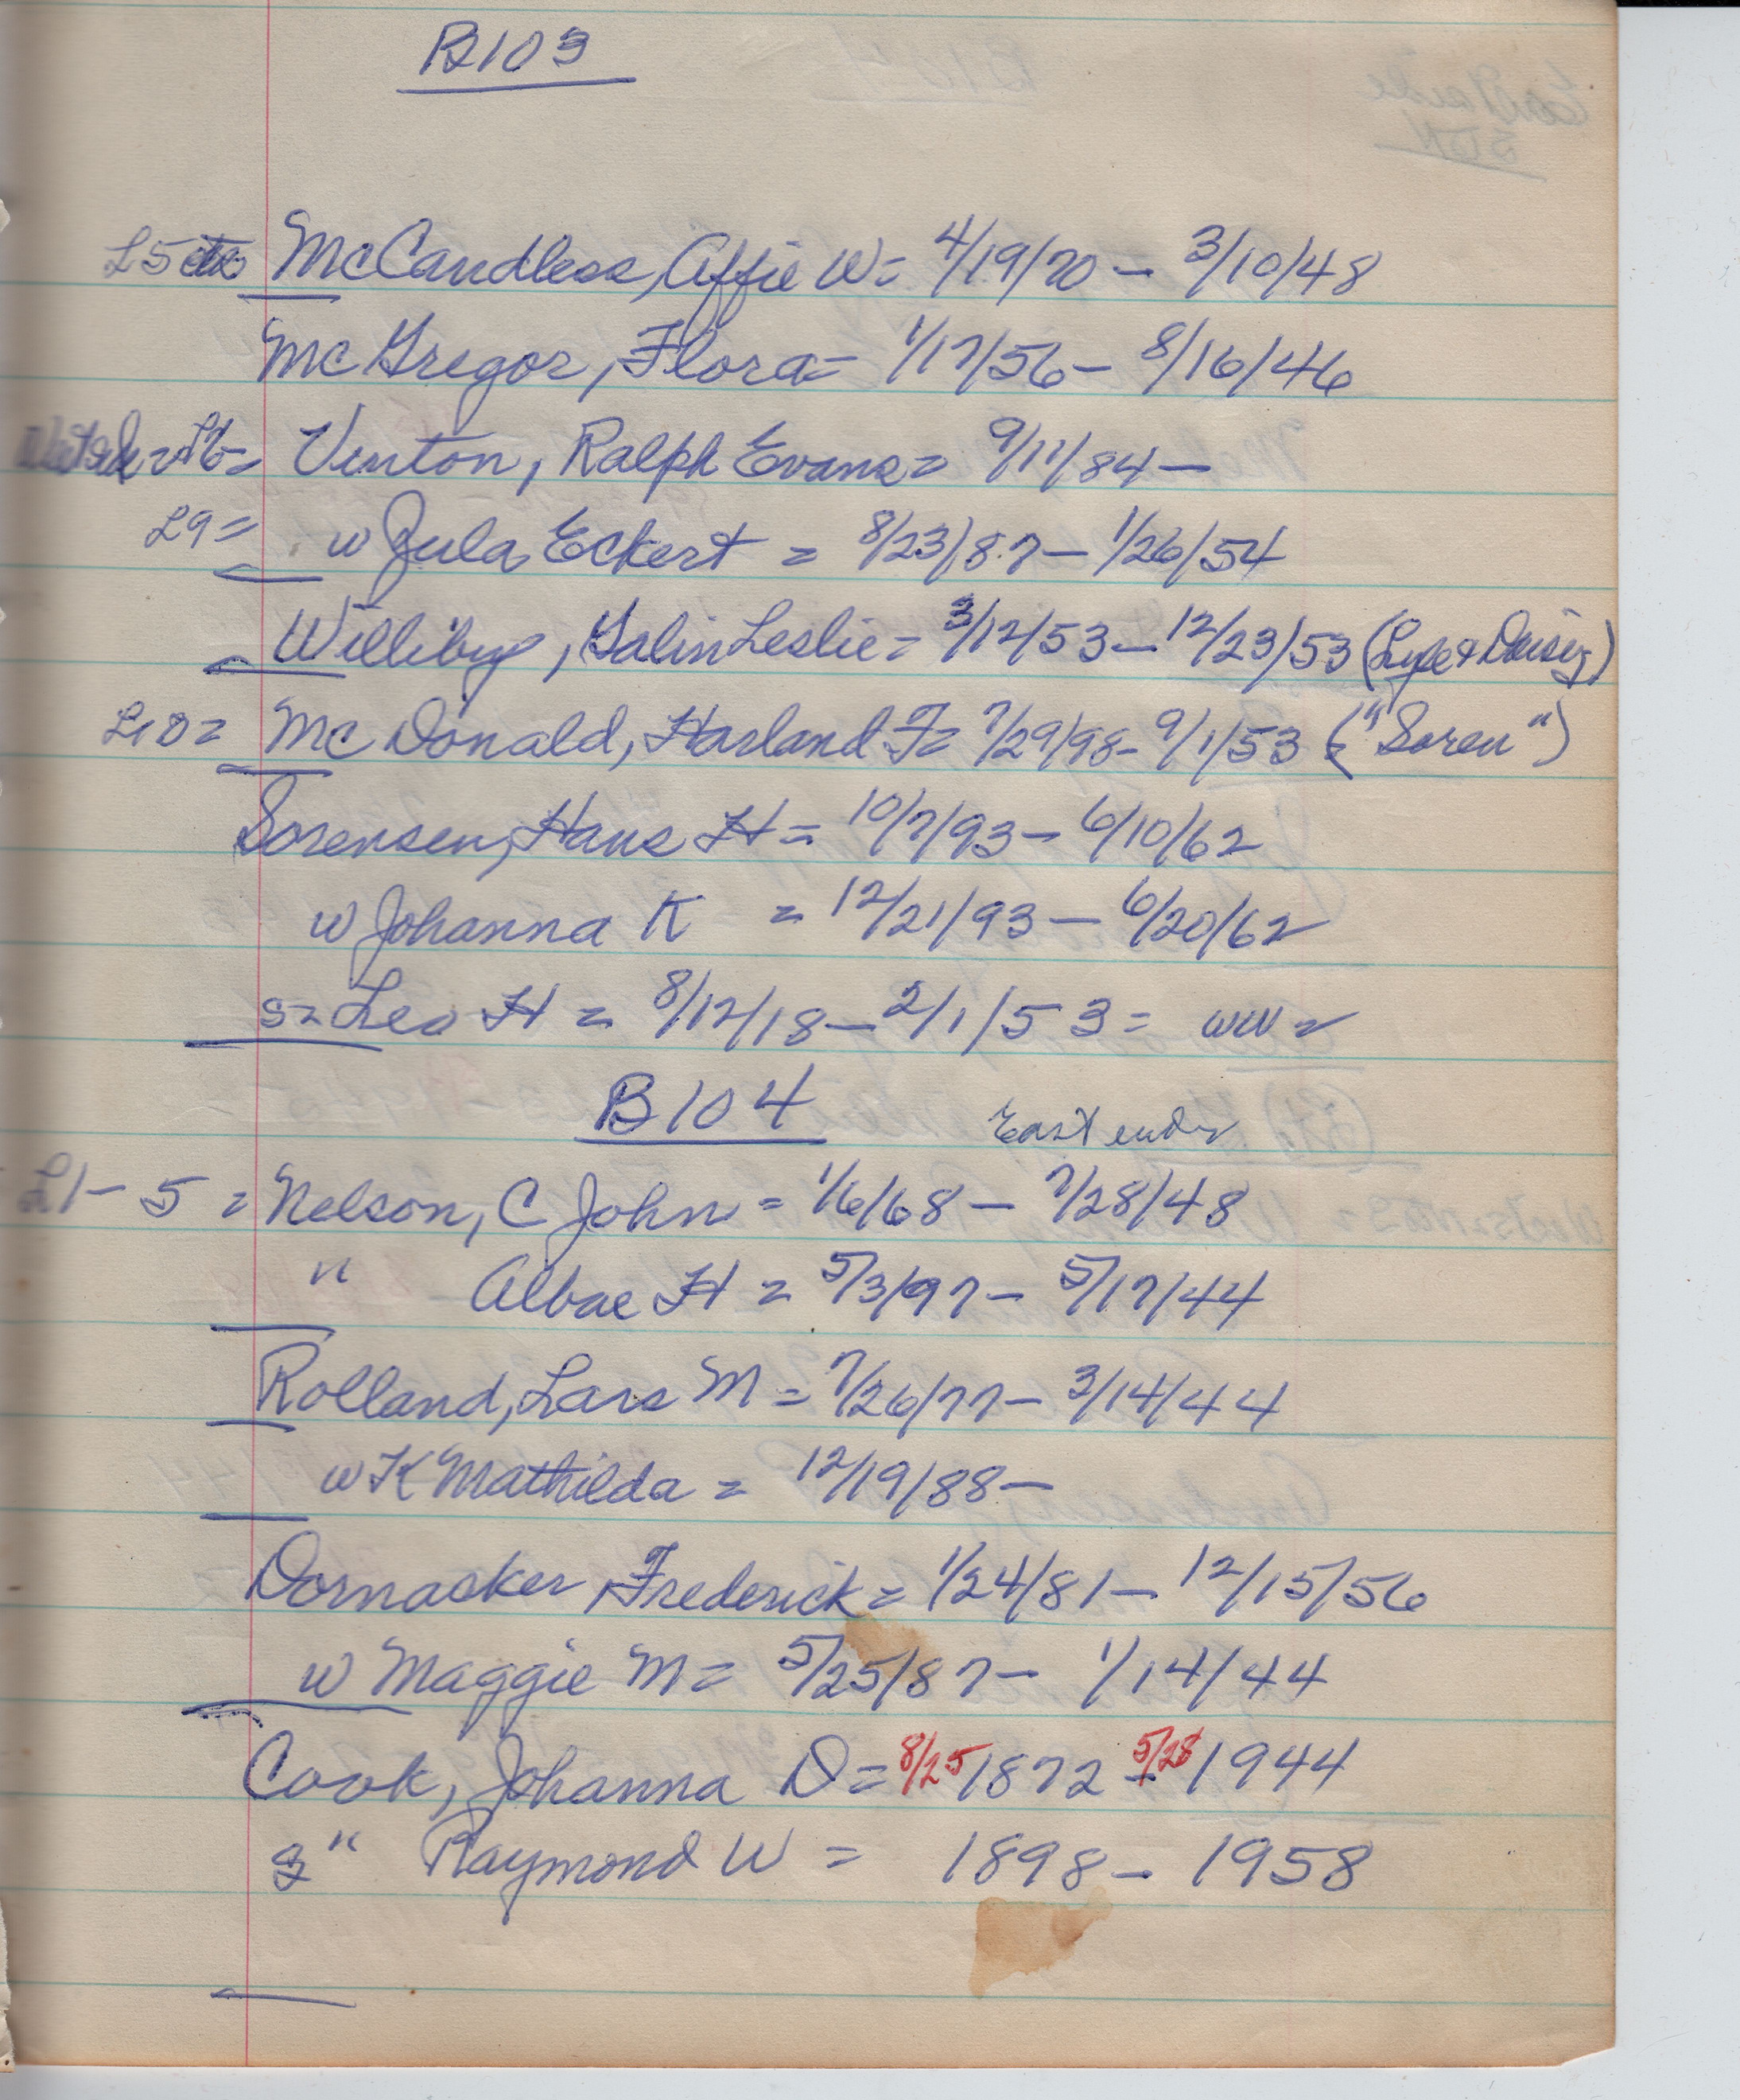 B103
L5 McCandless, Affie W = 4/19/70 – 3/10/48
McGregor, Flora = 1/17/56 – 8/16/46
Vinton, Ralph Evans = 9/11/84 –
L9 = w Zula Eckert = 8/23/87 – 1/26/54
Williby, Galin Leslie = 3/12/53 – 12/23/53 (Lyle & Daisy)
L10 = McDonald, Harland F = 7/29/98 – 9/1/53 ("Soren")
Sorensen, Hans H = 10/7/93 – 6/10/62
w Johanna K = 12/21/93 – 6/20/62
s = Leo H = 8/12/18 – 2/1/53 = WW2
B104
East end
L1 – 5 = Nelson, C John = 1/6/68 – 7/28/48
" Albae H = 5/3/97 – 5/17/44
Rolland, Lars M = 7/26/77 – 3/14/44
w K Mathilda = 12/19/88 –
Dornacker, Frederick = 1/24/81 – 12/15/56
w Maggie M = 5/25/87 – 1/14/44
Cook, Johanna D = 8/25 1872 – 5/28 1944
" Raymond W = 1898 – 1958